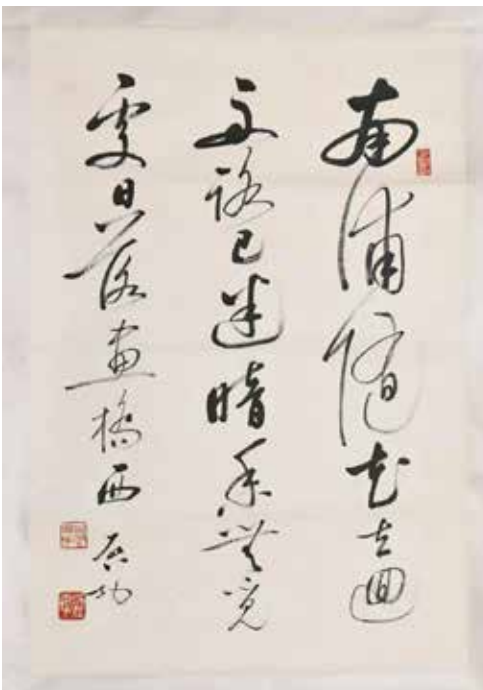 南浦隨花去迴
舟路已迷暗香無覓
處日落畫橋西 启功